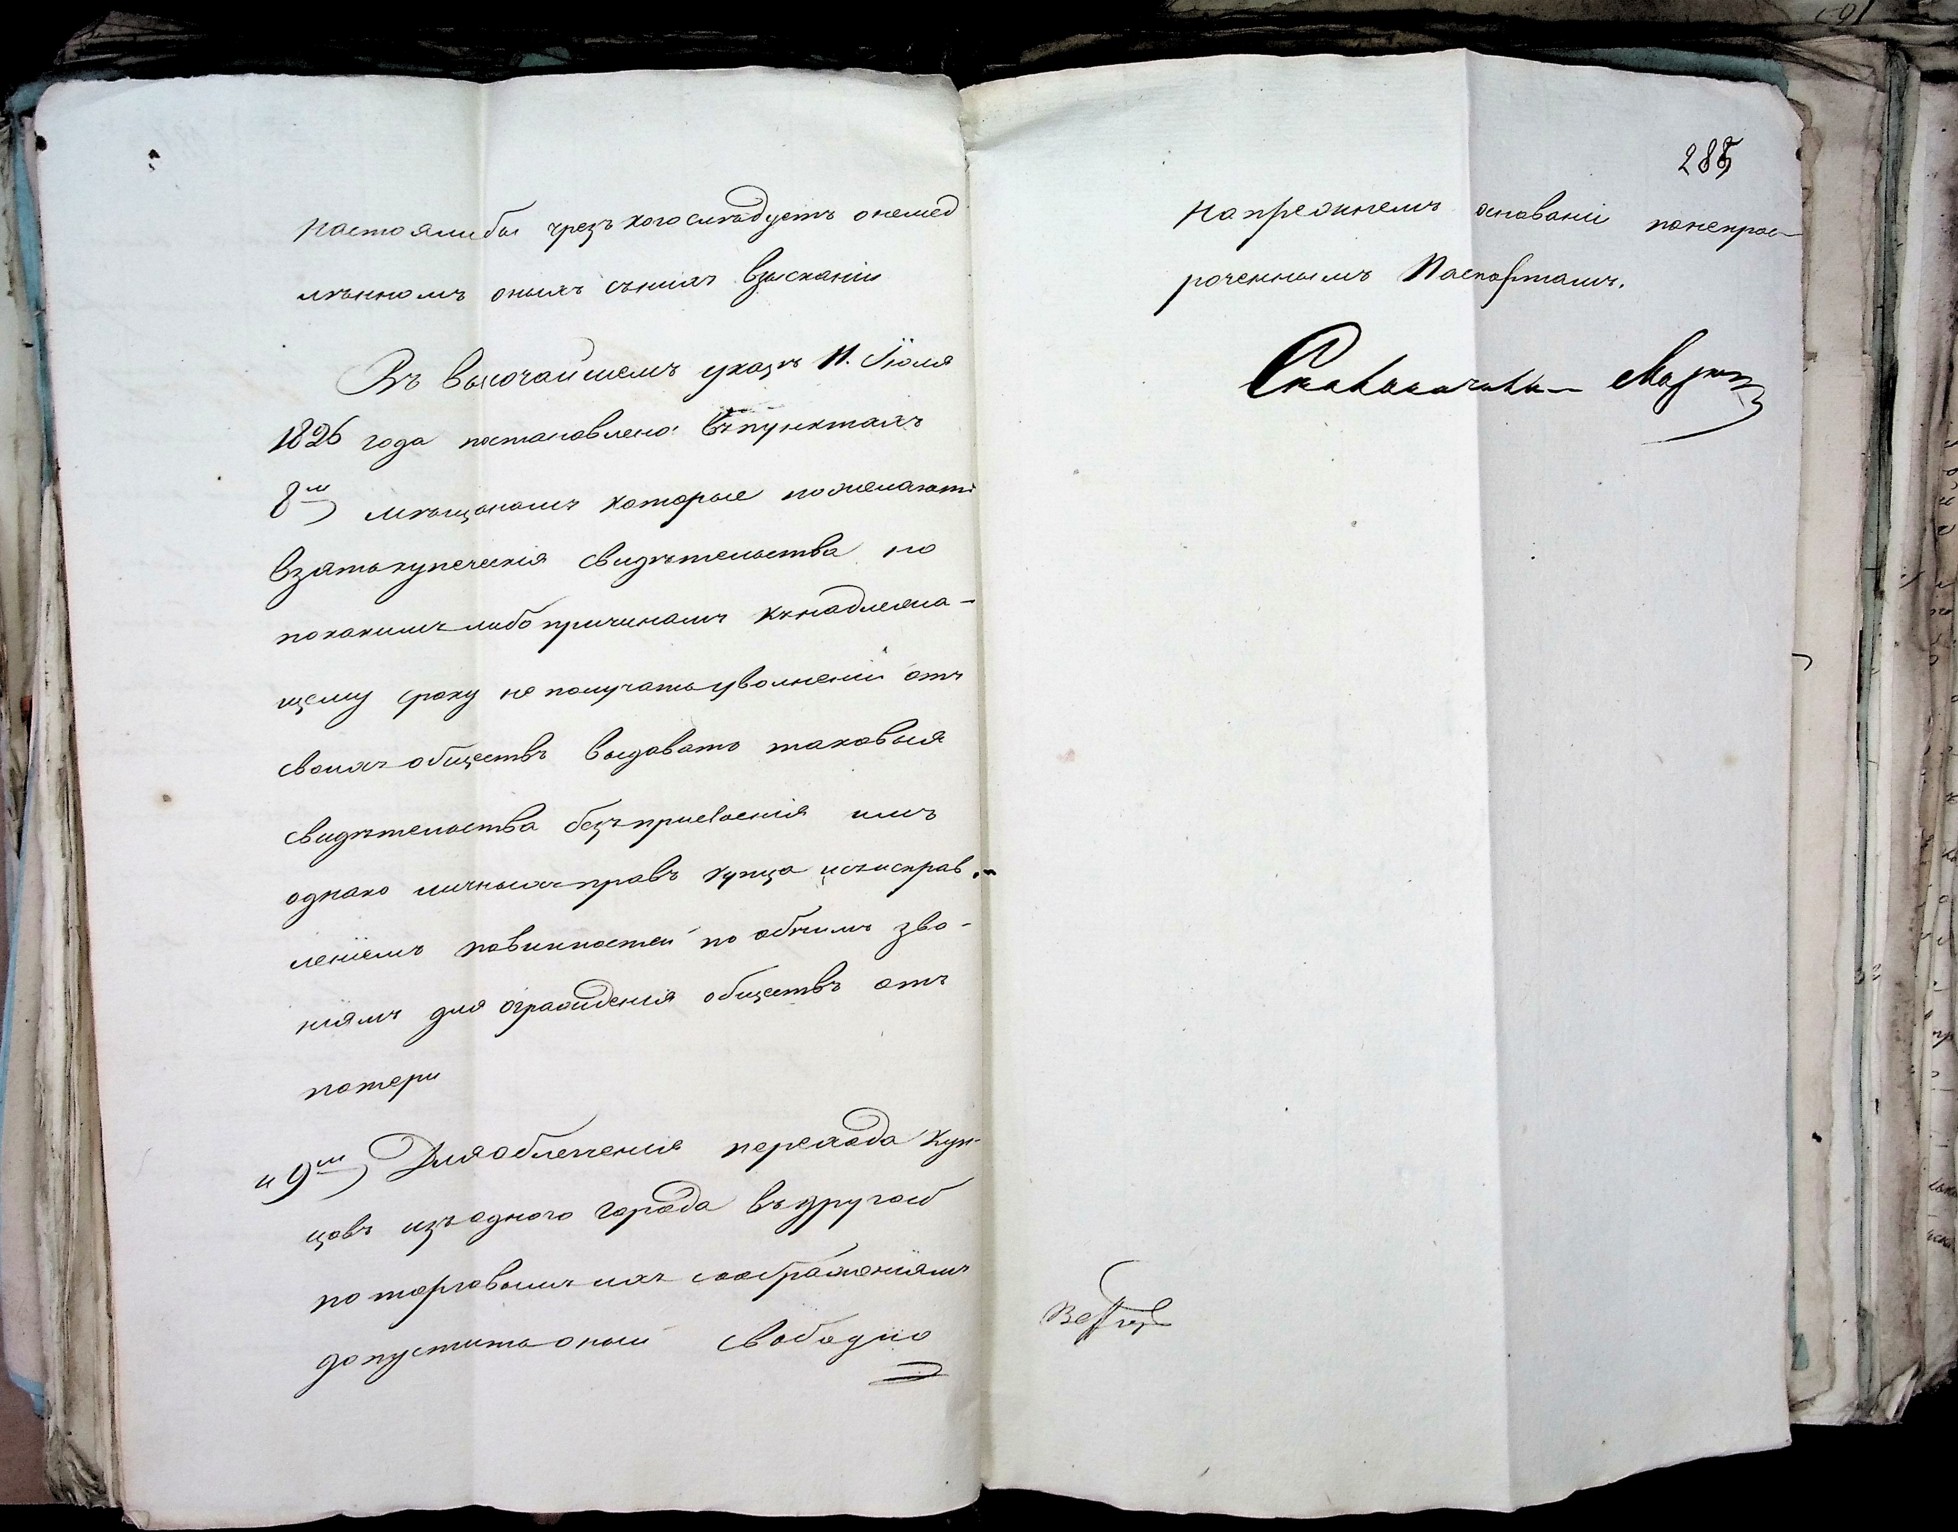 настоялибы чрезъ кого слѣдуетъ о немед
лѣнномъ оныхъ съ нихъ взысканіи
Въ высочайшемъ указѣ 11. Іюля
1826 года постановлено: въ пунктахъ
8м) мѣщанамъ которые пожелаютъ
взять купеческія свидѣтельства но
по какимъ либо причинамъ къ надлежа-
щему сроку не получатъ уволненій отъ
своихъ обществъ выдавать таковыя
свидѣтельства безъ присвоенія имъ
однако личныхъ правъ купца и съ исправ-
леніемъ повинностей по обѣимъ зва-
ніямъ для огражденія обществъ отъ
потери
и 9м) Для облегченія перехода куп-
цовъ изъ одного города въ другой
по торговымъ ихъ соображеніямъ
допустить оный свободно
285
на прежнемъ основаніи по непрос-
роченнымъ Паспортамъ.